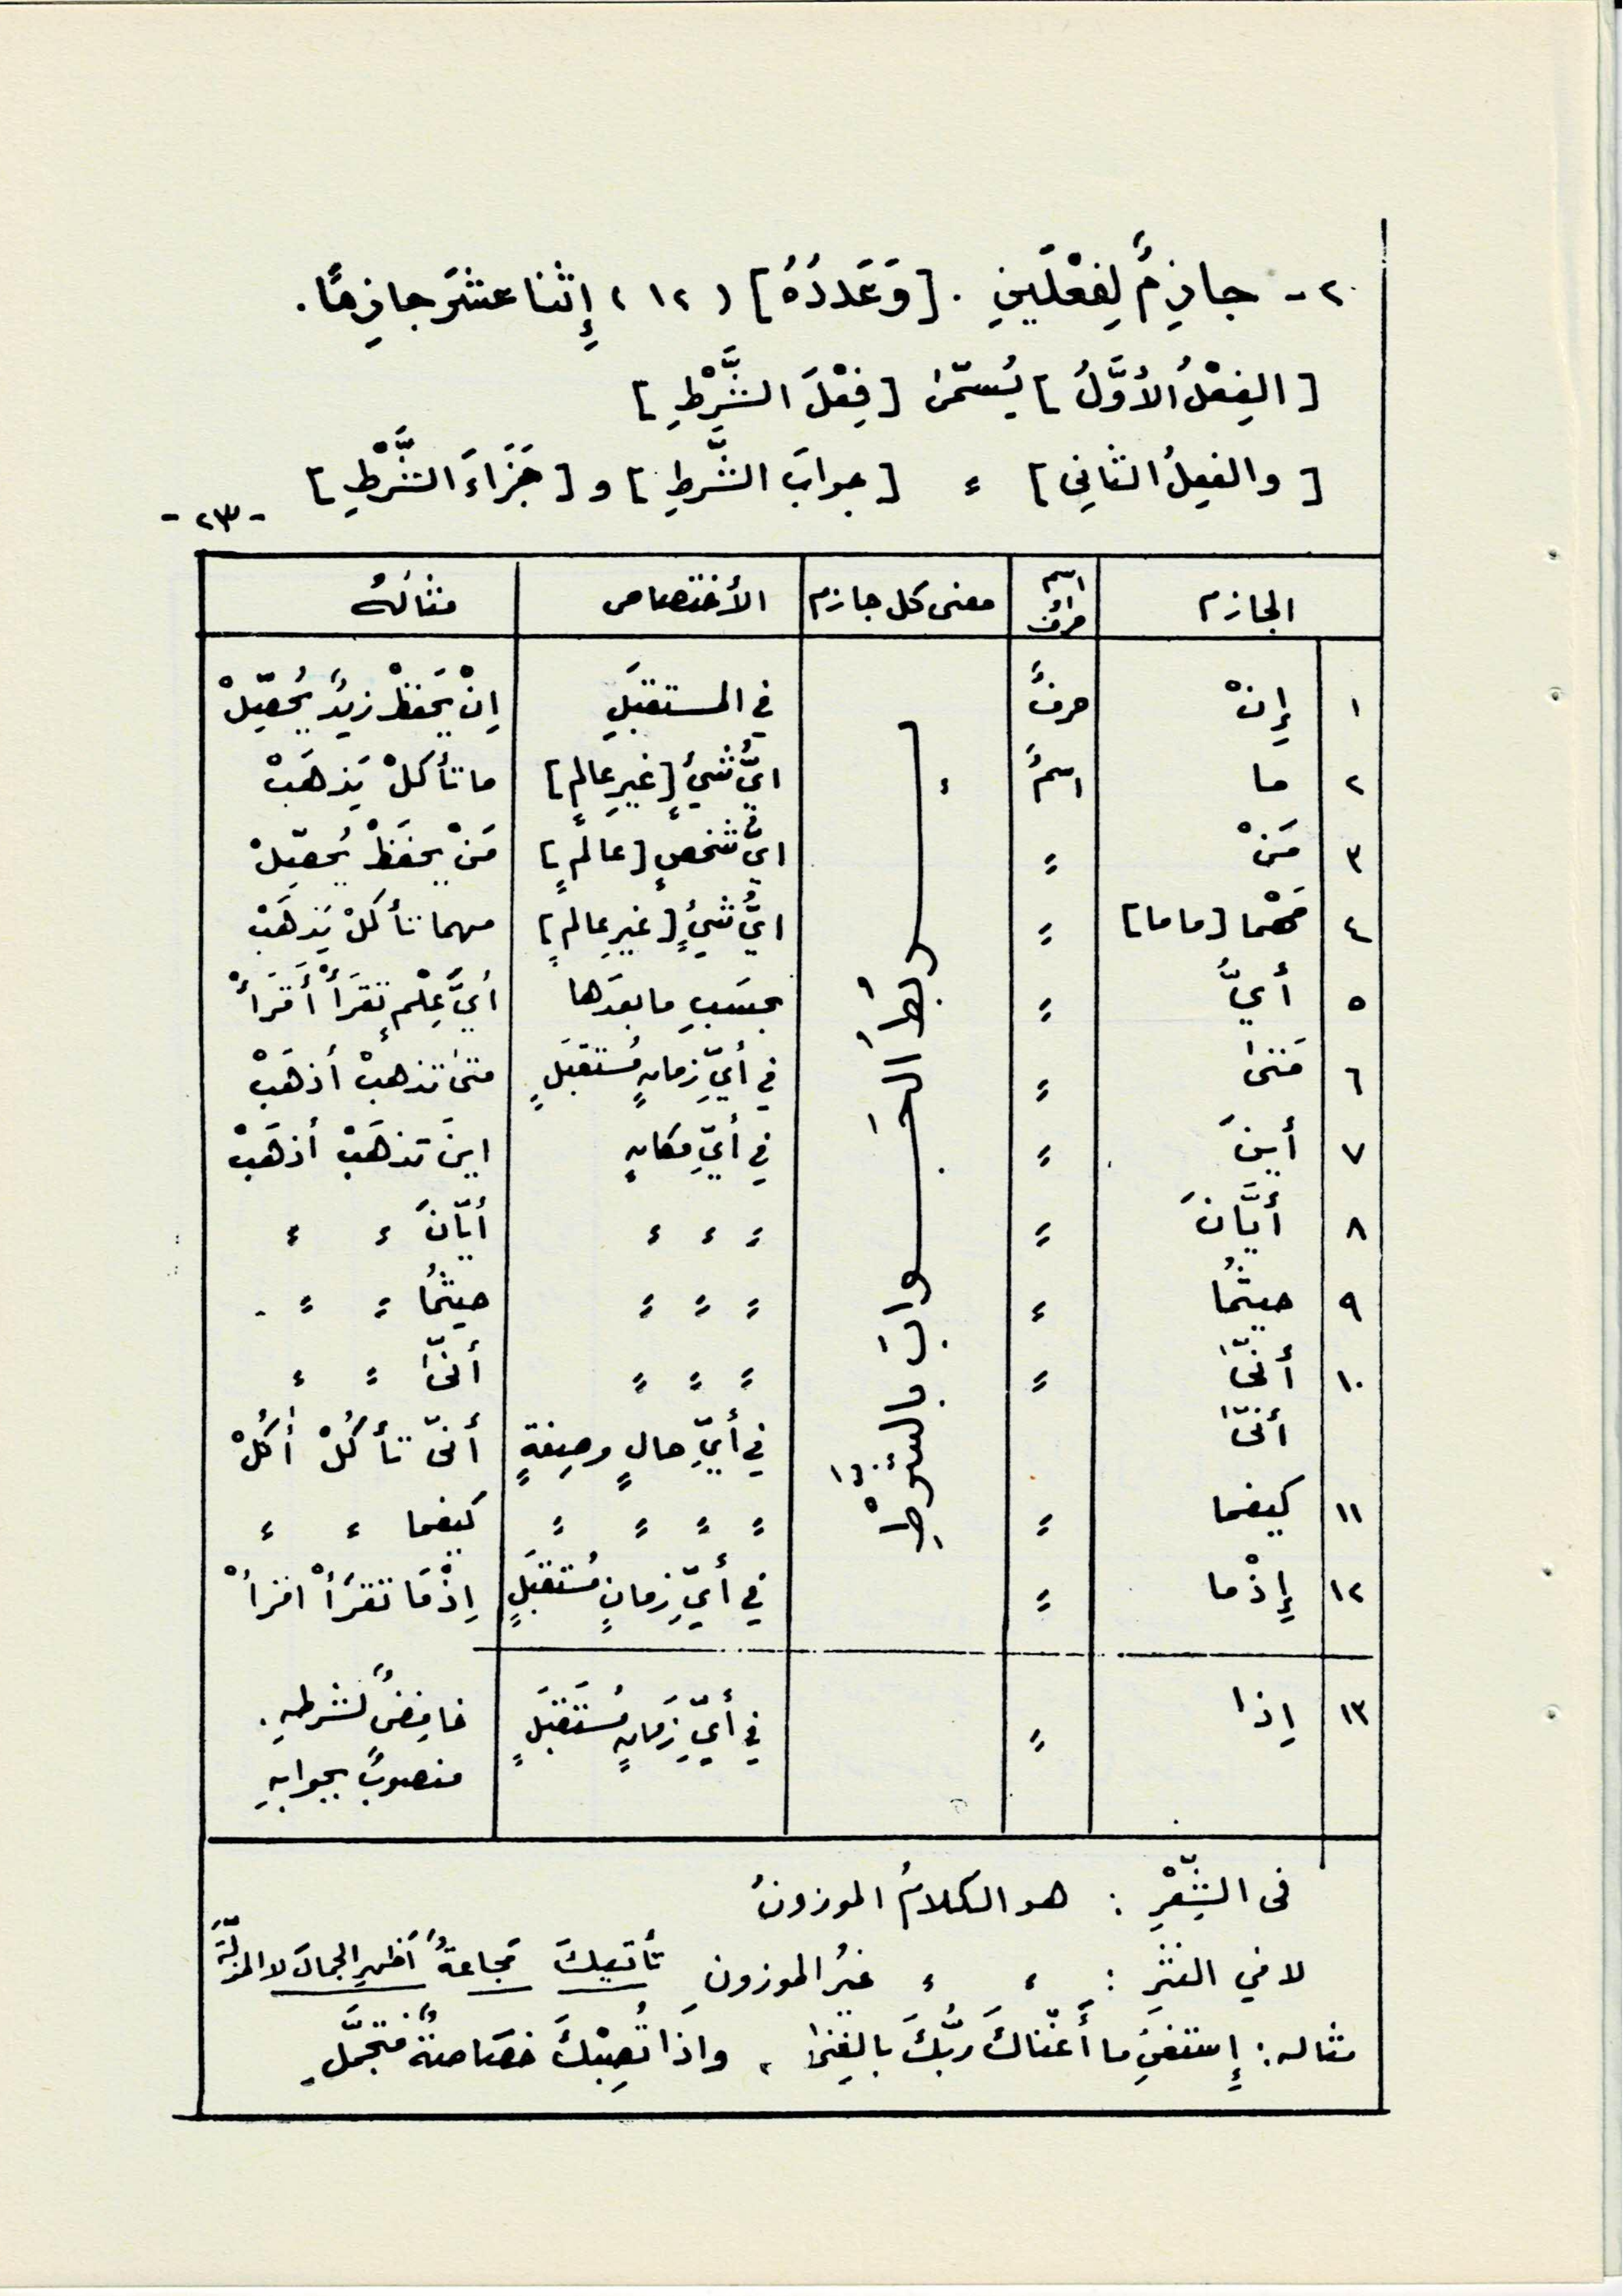 ٢- جازِمٌ لِفِعْلَينِ . [وَعَدَدُهُ] (١٢) إِثنا عشَرَ جازِمًا.
[الفِعْلُ الأوَّلُ] يُسَمّىٰ [فِعْلَ الشَّرْطِ]
[والفعِلُ الثاني] ء [جوابَ الشَّرطِ] و [جَزَاءَ الشَّرْطِ]
-٢٣-
الجازم اسم أو حرف معنى كل جازم الأختصاص مثالُهُ
ربطُ الجَوابَ بالشَّرْطِ
١ إِنْ حرفٌ في المستقبَلِ إِنْ يَحَفظْ زيدٌ يُحصِّلْ
٢ ما اسمٌ ء ايُّ شيءٍ [غيرِ عالمٍ] ما تأكلْ يَذهَبْ
٣ مَنْ = ايُّ شخصٍ [عالمٍ] مَنْ يحفَظْ يُحصِّلْ
٤ مَهْما [ماما] = ايُّ شيءٍ [غيرِ عالمٍ] مهما تأكلْ يَذهَبْ
٥ أيُّ = بحسَبِ ما بعدَها أيَّ عِلْمٍ تَقرَأْ أَقرَأْ
٦ مَتىٰ = في أيِّ زمانٍ مُستقبَلٍ متىٰ تذهبْ أذهَبْ
٧ أينَ = في أيِّ مكانٍ اينَ تذهَبْ أذهَبْ
٨ أيَّانَ = = ء ء أيّانَ ء ء
٩ حيثُما ء = = = حيثُما = =
١٠ أنّىٰ = = = = أنّىٰ = ء
أنّىٰ في أيِّ حالٍ وصِفةٍ أنّى تأكُلْ أٰكُلْ
١١ كيفما = = = = = كيفما ء ء
١٢ إِذْما = في أيِّ زمانٍ مُستقبَلٍ إِذْمَا تَقرَأْ اقرأْ
١٣ إِذا = في أيِّ زَمانٍ مُستَقبَلٍ خافِضٌ لشرطهِ.
منصوبٌ بجوابهِ
فى الشِّعْرِ : هو الكلامُ الموزونُ
لا في النثرِ : ء ء غيرُ الموزونِ تأتيكَ مَجاعةٌ أظهرِ الجمالَ لا المذلّةَ
مثاله: إِستغنِ ما أَغناكَ ربُّكَ بالغِنىٰ ، واذَا تُصِبْكَ خصَاصةٌ فتجمَّلِ